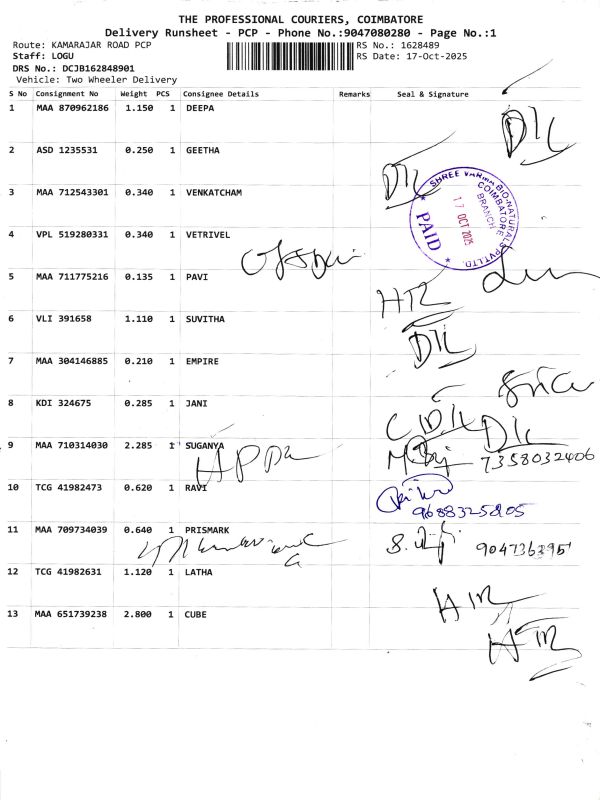 THE PROFESSIONAL COURIERS, COIMBATORE
Delivery Runsheet - PCP - Phone No.:9047080280 - Page No.:1
Route: KAMARAJAR ROAD PCP RS No.: 1628489
Staff: LOGU RS Date: 17-Oct-2025
DRS No.: DCJB162848901
Vehicle: Two Wheeler Delivery
S No Consignment No Weight PCS Consignee Details Remarks Seal & Signature
1 MAA 870962186 1.150 1 DEEPA
2 ASD 1235531 0.250 1 GEETHA
3 MAA 712543301 0.340 1 VENKATCHAM
SHREE VARMA BIO-NATURALS PVT.LTD.
COIMBATORE
BRANCH
17 OCT 2025
PAID
4 VPL 519280331 0.340 1 VETRIVEL
5 MAA 711775216 0.135 1 PAVI
6 VLI 391658 1.110 1 SUVITHA
7 MAA 304146885 0.210 1 EMPIRE
8 KDI 324675 0.285 1 JANI
9 MAA 710314030 2.285 1 SUGANYA
7358032406
10 TCG 41982473 0.620 1 RAVI
11 MAA 709734039 0.640 1 PRISMARK
12 TCG 41982631 1.120 1 LATHA
13 MAA 651739238 2.800 1 CUBE